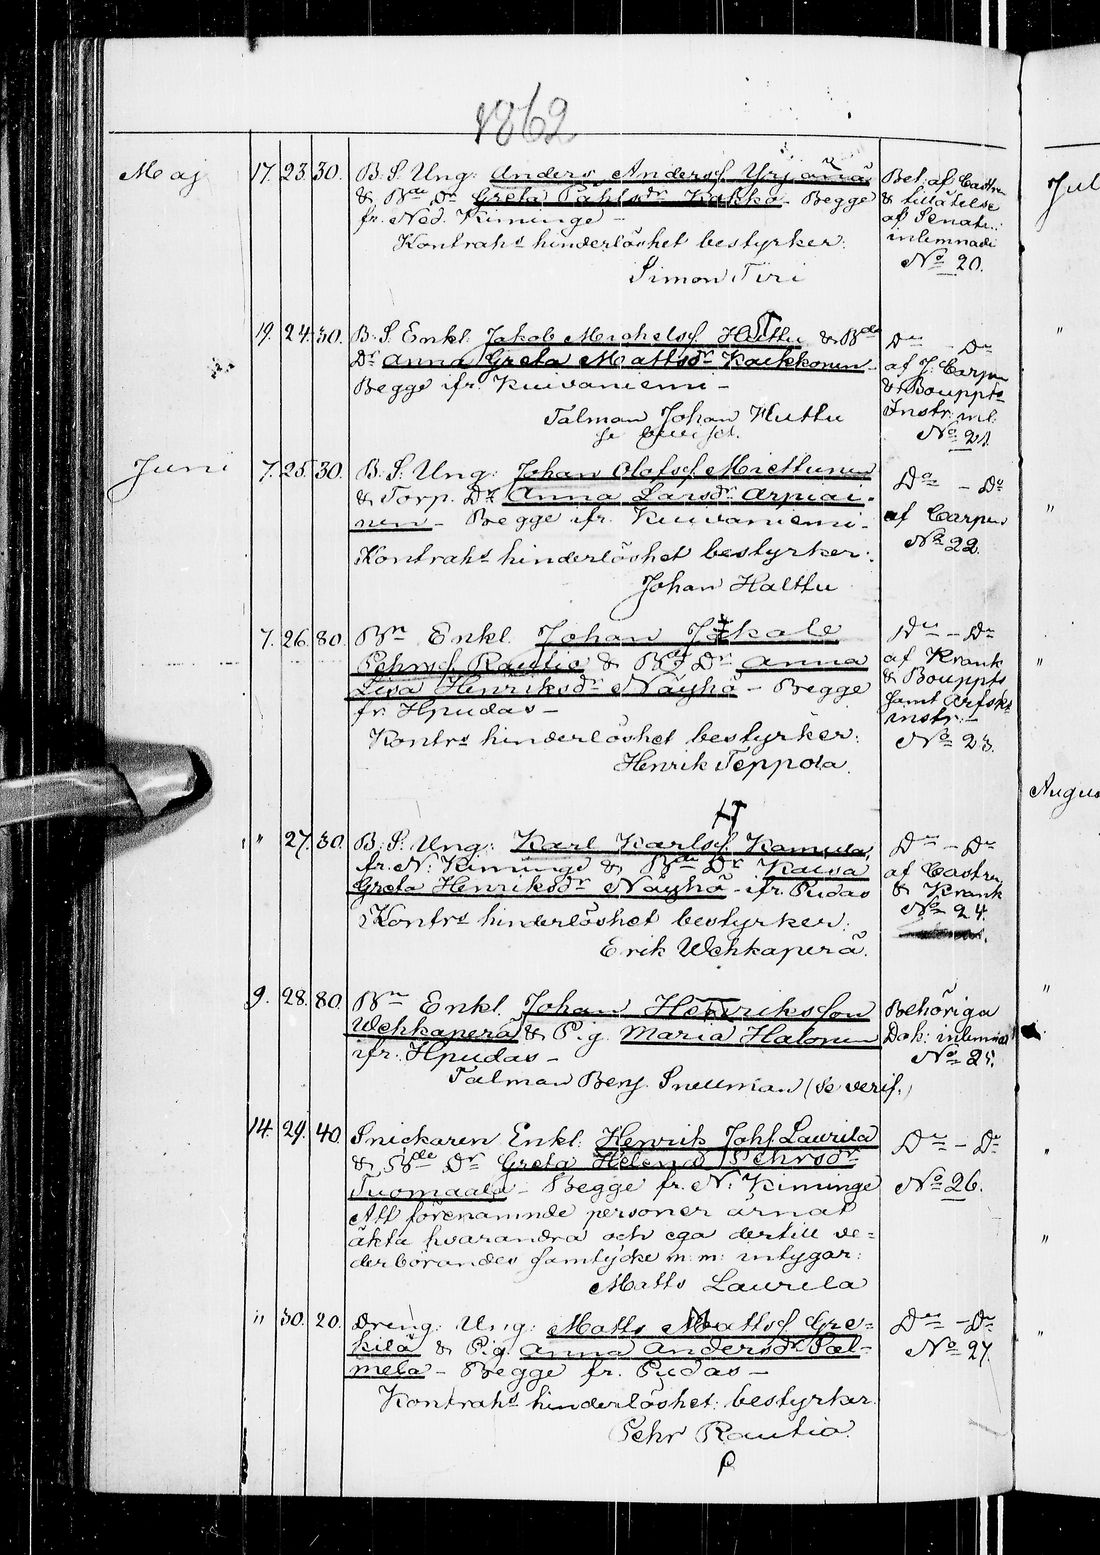 1862
Maj 17. 23. 30. B. S. Ung: Anders Andersf. Yrjänä
& Bde Dr Greta Påhlsdr Kakko - Begge
fr. Ned. Kiminge -
Kontrahs hinderlöshet bestyrker:
Simon Tiri
Bet. af Castrén
& tillåtelse
af Senaten
inlemnade
No 20.
19. 24. 30. B. S. Enkl. Jakob Michelsf. Huttu & Bde
Dr Anna Greta Mattsdr Kaikkonen -
Begge ifr. Kuivaniemi -
Talman Johan Huttu
se beviset.
Do - Do
af J. Carpen
& Bouppts
Instr. inl.
No 21.
Juni 7. 25. 30. B. S. Ung: Johan Olofsf. Miettunen
& Torp. Dr Anna Larsdr Arpiai-
nen - Begge ifr. Kuivaniemi -
Kontrahs hinderlöshet bestyrker:
Johan Halttu
Do - Do
af Carpen
No 22.
7. 26. 80. Bn Enkl. Johan Jakole
Pehrsf. Rautio & Bde Dr Anna
Lisa Henriksdr Näyhä - Begge
fr. Hpudas -
Kontrs hinderlöshet bestyrker:
Henrik Teppola.
Do - Do
af Krank
& Bouppts
samt Arfsk
instr. -
No 23.
" 27. 30. B. S. Ung: Karl Karlsf. Kamula,
fr. N. Kiminge & Bde Dr Kaisa
Greta Henriksdr Näyhä - ifr. Pudas
Kontrs hinderlöshet bestyrker:
Erik Wehkaperä.
Do - Do
af Castren
& Krank
No 24.
9. 28. 80. Bn Enkl. Johan Henriksson
Wehkaperä & Pig. Maria Halonen
ifr. Hpudas -
Talman Benj. Sneuman (se verif.)
Behöriga
Dok: inlemnad
No 25.
14. 29. 40. Snickaren Enkl: Henrik Johsf. Laurila
& Bde Dr Greta Helena Pehrsdr
Tuomaala - Begge fr. N. Kiminge
Att förenämnde personer ärnat
äkta hvarandra och ega dertill ve-
derbörandes samtycke m: m: intygar:
Matts Laurila
Do - Do
No 26.
" 30. 20. Dreng: Ung: Matts Mattsf. Gre-
kilä & Pig. Anna Andersdr Pal-
mela - Begge fr. Pudas -
Kontrahs hinderlöshet: bestyrker.
Pehr Rautio.
Do - Do
No 27.
Jul
Augus